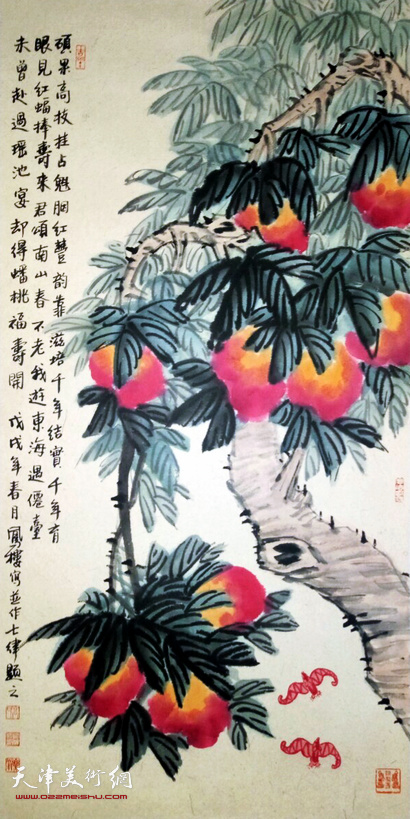 碩果高枝挂占魁胭红豐韵靠滋培千年结實千年有
眼見红蝠捧壽來君頌南山春不老我游東海遇僊臺
未曾赴過瑶池宴却得蟠桃福壽開 戊戌年春月鳳樓寫並作七律題之
天津美術網
www.022meishu.com